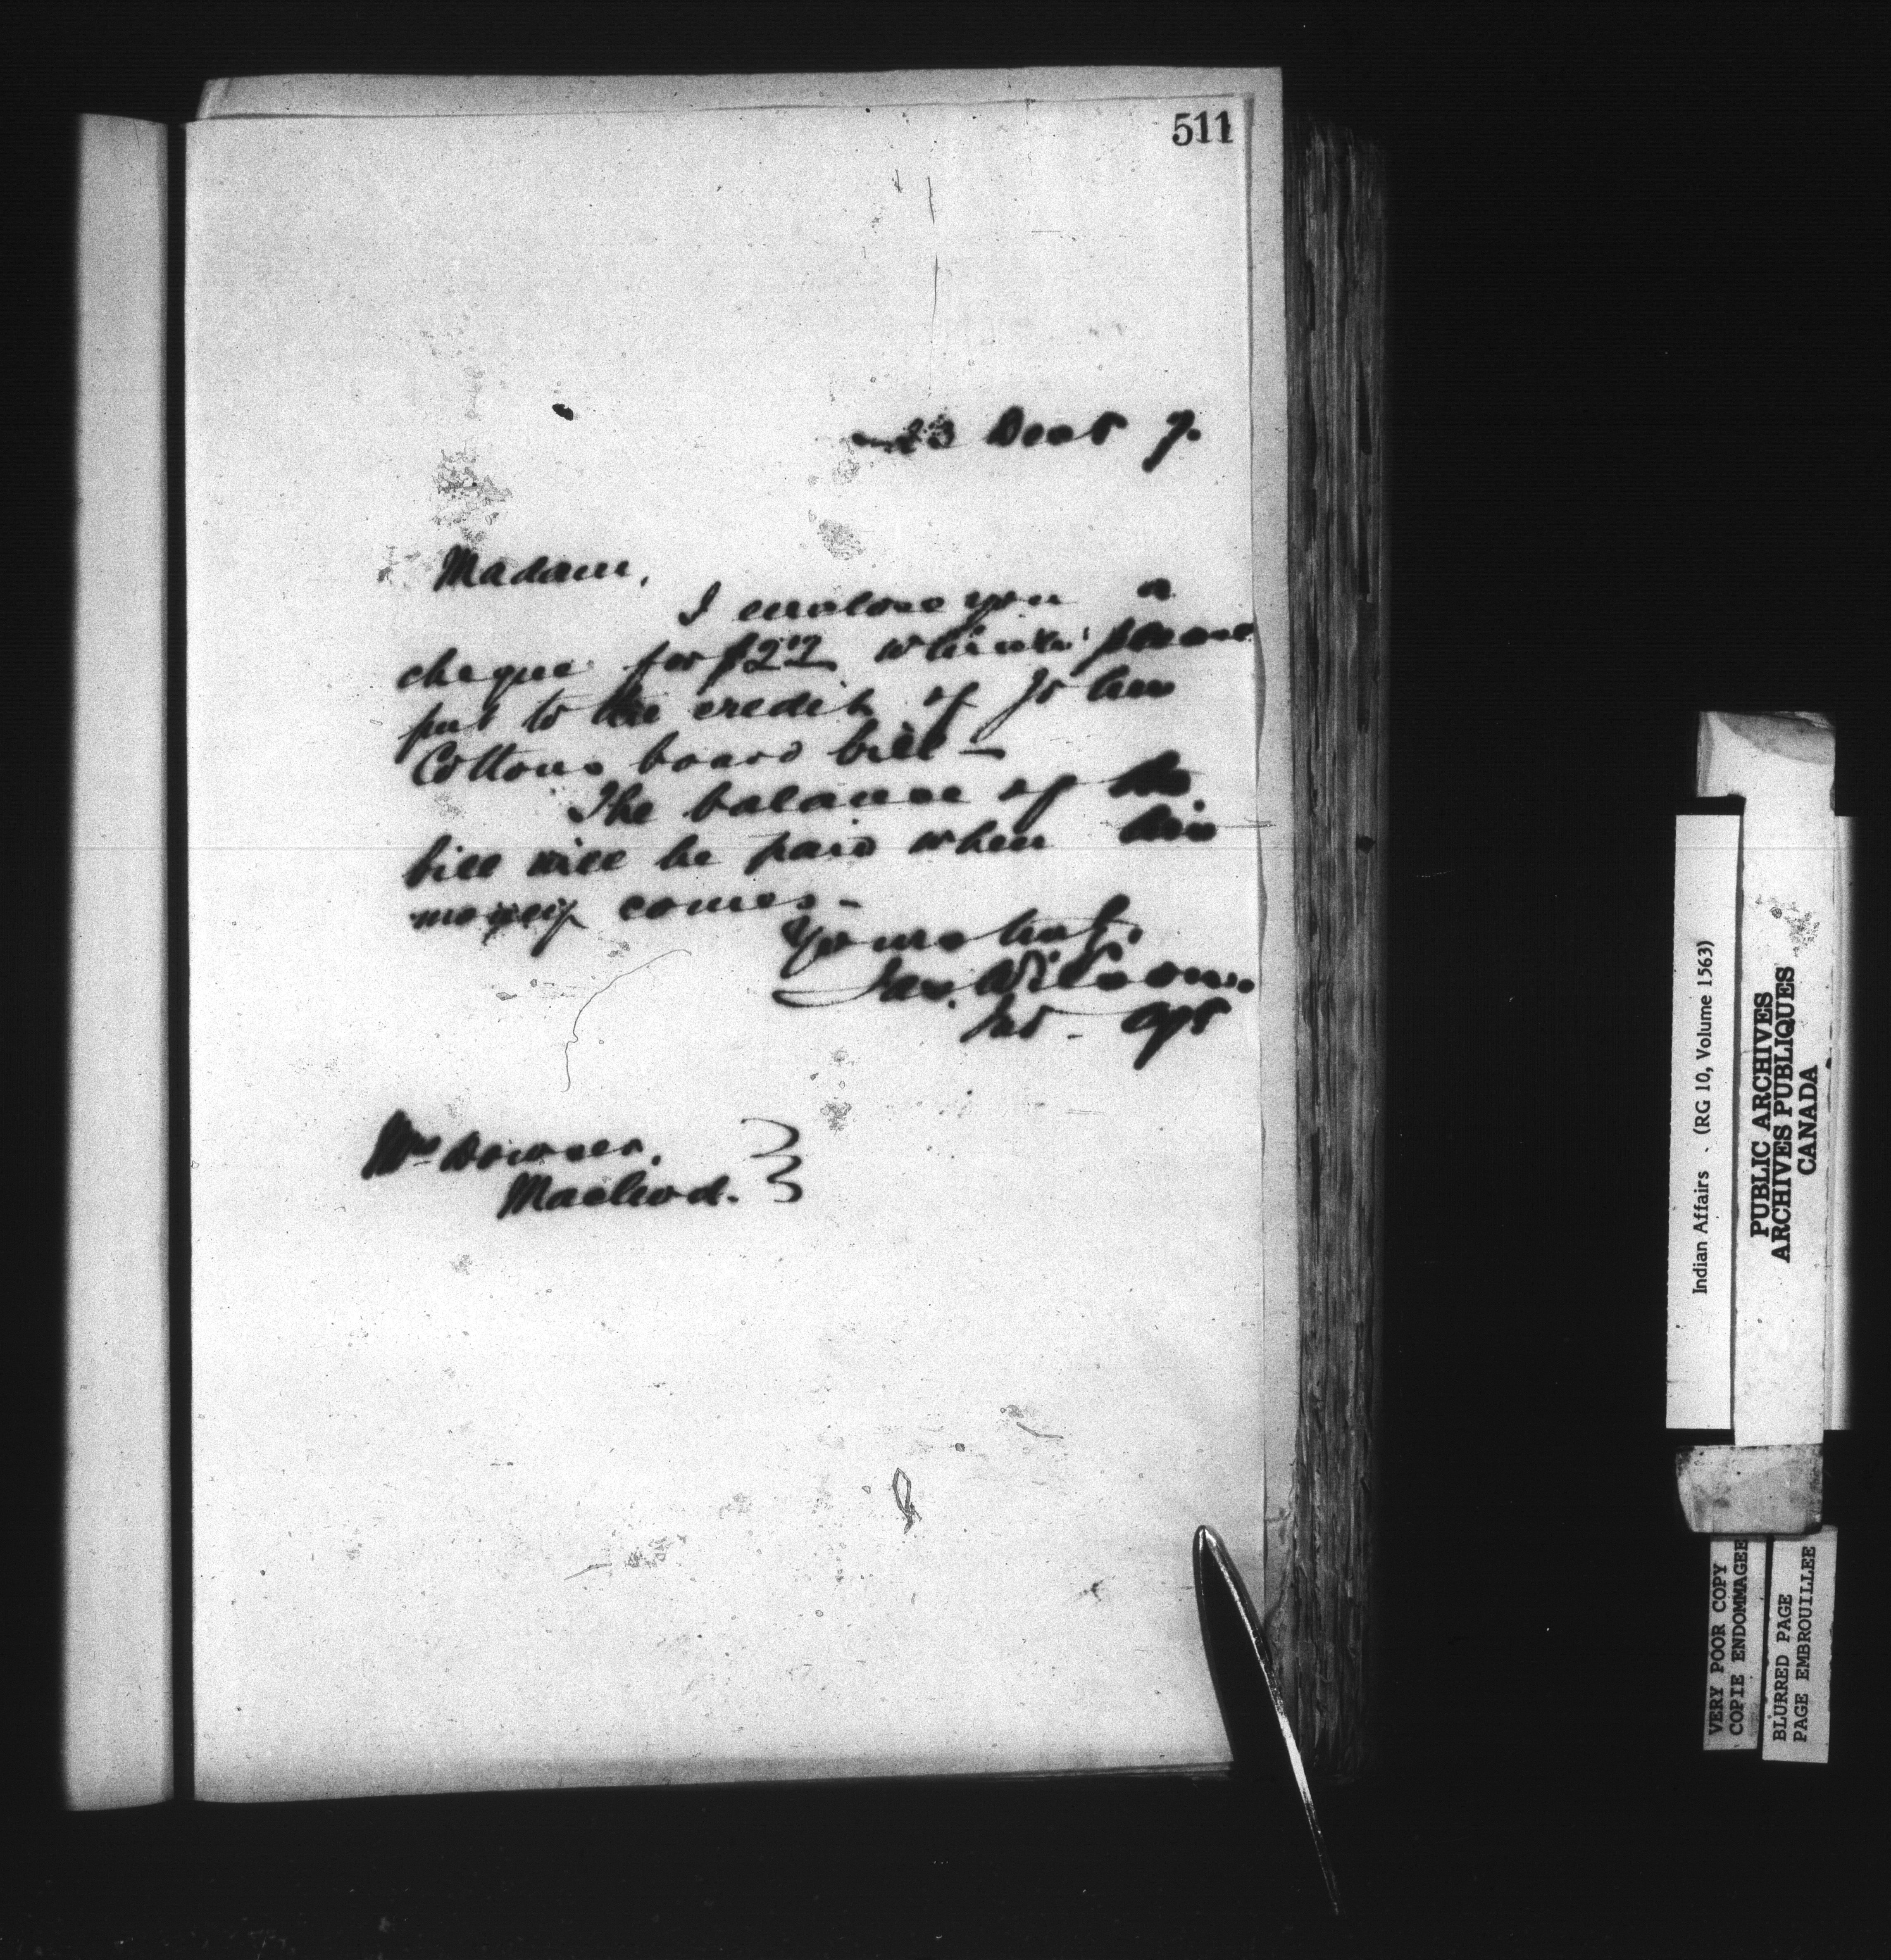 511
23 Decr 7.
Madam,
I enclose you a
cheque for $22 which please
put to the credit of John
Cottons board bill —
The balance of the
bill will be paid when his
money comes —
Yours truly.
Jas. Wilson.
Ind. Agt
Mrs
Macleod.
Indian Affairs . (RG 10, Volume 1563)
PUBLIC ARCHIVES
ARCHIVES PUBLIQUES
CANADA
VERY POOR COPY
COPIE ENDOMMAGEE
BLURRED PAGE
PAGE EMBROUILLEE